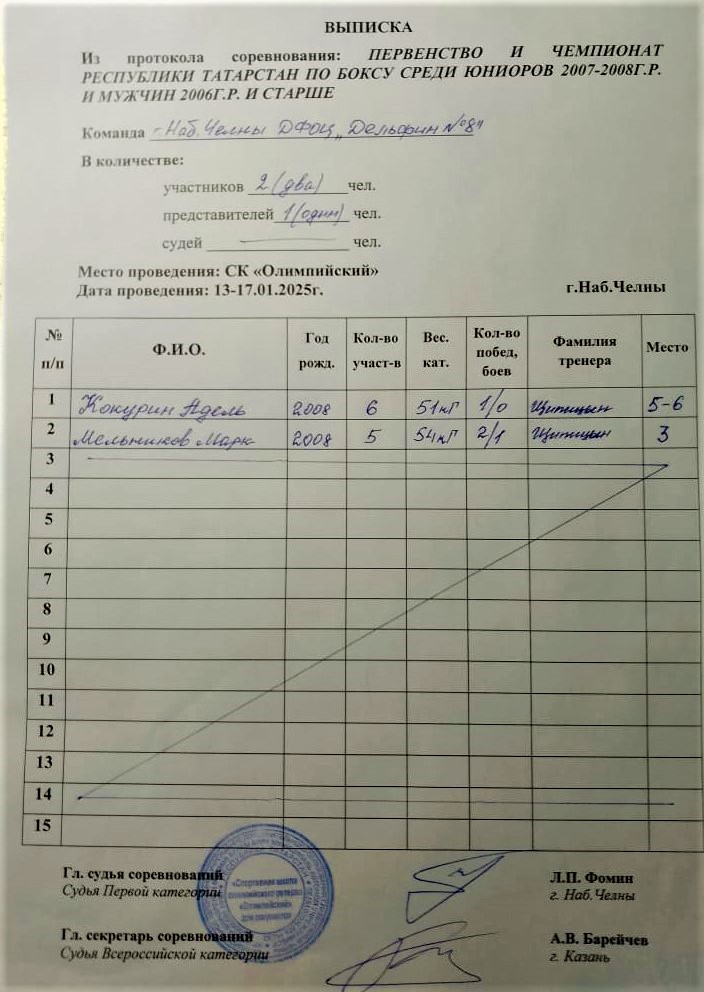 ВЫПИСКА
Из протокола соревнования: ПЕРВЕНСТВО И ЧЕМПИОНАТ
РЕСПУБЛИКИ ТАТАРСТАН ПО БОКСУ СРЕДИ ЮНИОРОВ 2007-2008Г.Р.
И МУЖЧИН 2006Г.Р. И СТАРШЕ
Команда г. Наб. Челны ДФОЦ „Дельфин №8"
В количестве:
участников 2 (два) чел.
представителей 1 (один) чел.
судей чел.
Место проведения: СК «Олимпийский»
Дата проведения: 13-17.01.2025г. г.Наб.Челны
№ п/п Ф.И.О. Год рожд. Кол-во участ-в Вес. кат. Кол-во побед, боев Фамилия тренера Место
1 Кокурин Адель 2008 6 51кг 1/0 5-6
2 Мельников Марк 2008 5 54кг 2/1 3
3
4
5
6
7
8
9
10
11
12
13
14
15
Гл. судья соревнований Л.П. Фомин
Судья Первой категории г. Наб.Челны
«Спортивная школа
олимпийского резерва
«Олимпийский»
для документов
Гл. секретарь соревнований А.В. Барейчев
Судья Всероссийской категории г. Казань